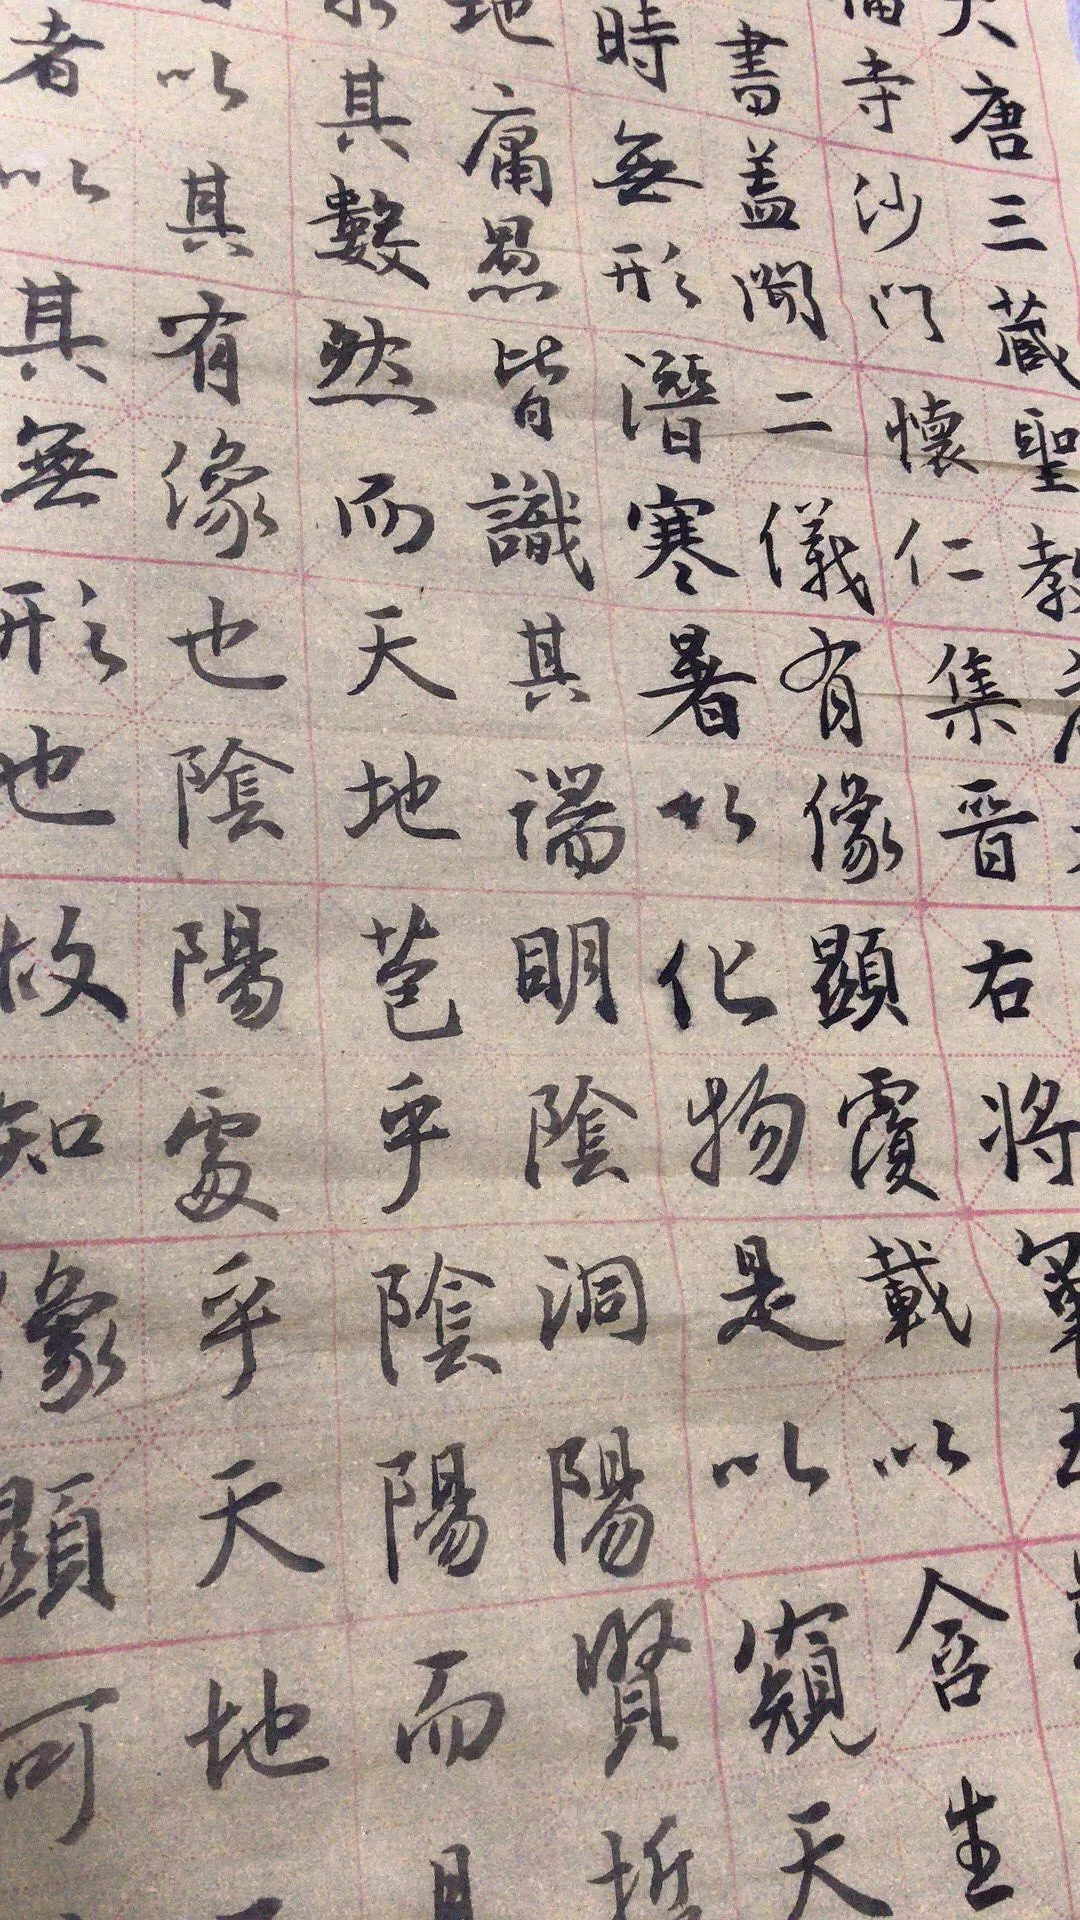 大唐三藏聖教
福寺沙門懷仁集晉右將
書盖聞二儀有像顯覆載以含生
時無形潛寒暑以化物是以窺天
地庸愚皆識其端明陰洞陽賢哲
其數然而天地苞乎陰陽而
以其有像也陰陽處乎天地
者以其無形也故知像顯可